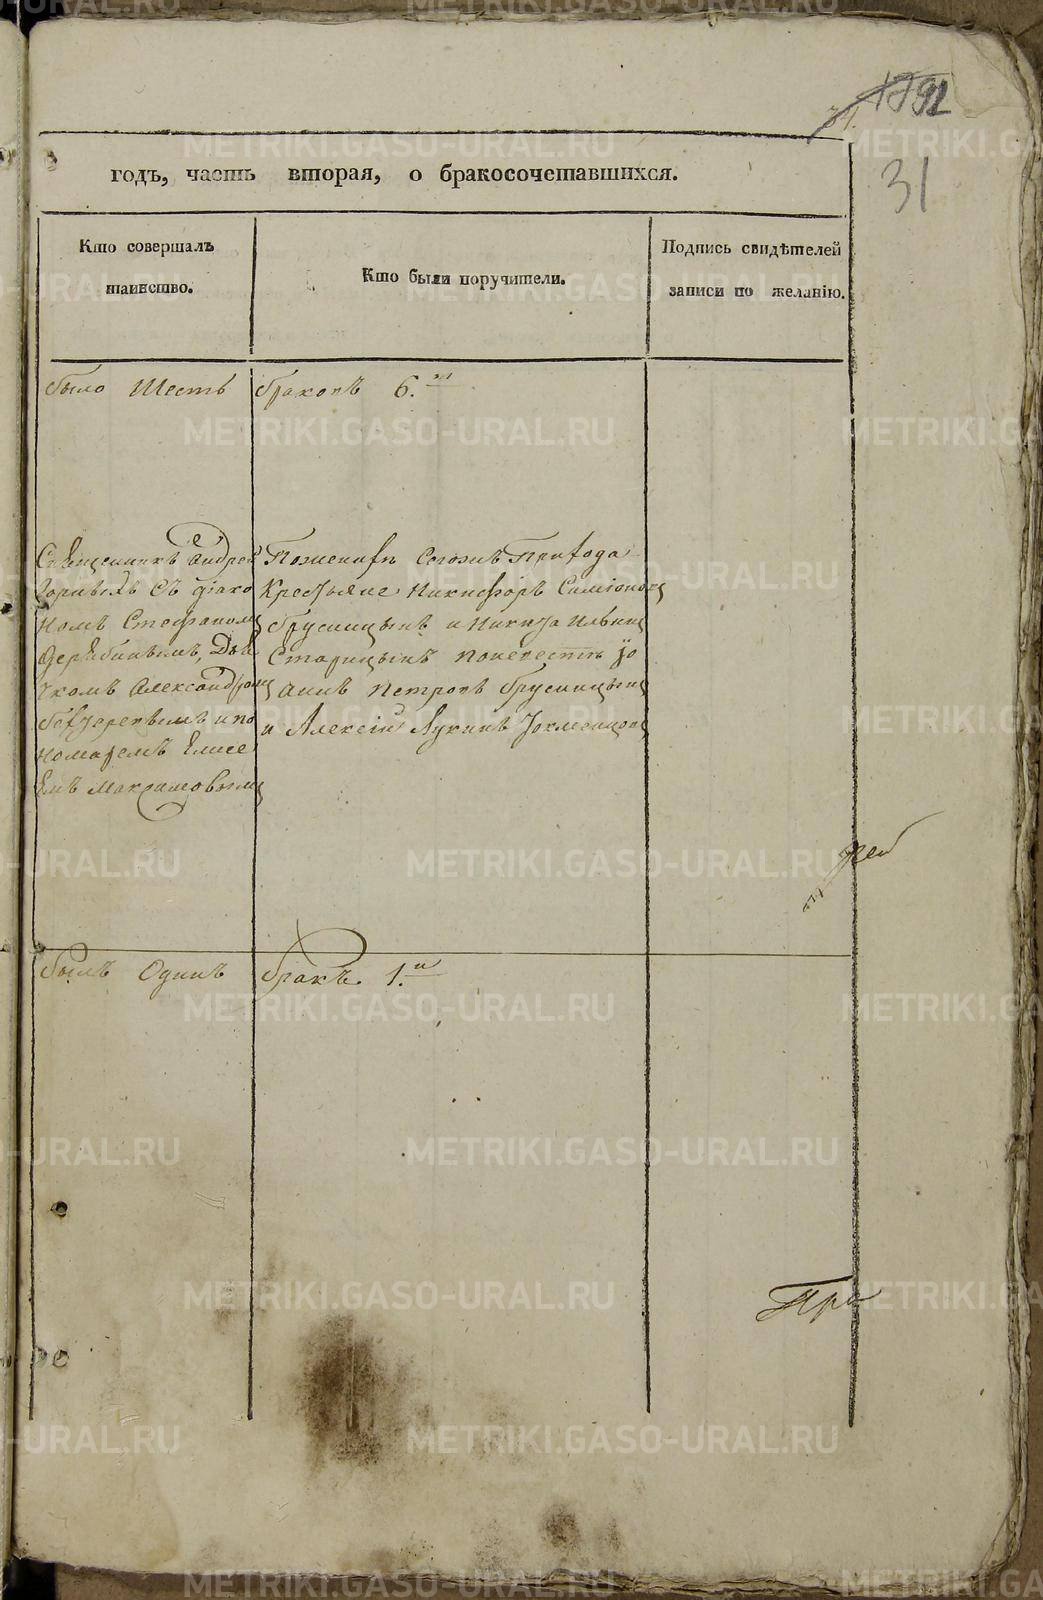 31
годъ, часть вторая, о бракосочетавшихся.
Кто совершалъ таинство.
Кто были поручители.
Подпись свидѣтелей записи по желанію.
было Шесть браковъ 6.
Священникъ Андрей
съ діако
номъ Стефаномъ
Дерябинымъ, Дья
чкомъ Александромъ
и по
номаремъ Елисе
емъ
По женихѣ Сегожъ Прихода
Крестьяне Никифоръ Симіоновъ
Брусницынъ и Никита Ильинъ
Старицынъ по невѣстѣ Іо
аннъ Петровъ Брусницынъ
и Алексій Лукинъ
былъ Одинъ бракъ. 1.
При
METRIKI.GASO-URAL.RU